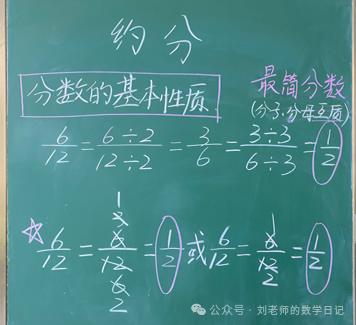 约分
分数的基本性质
最简分数
(分子.分母互质)
6/12 = 6÷2/12÷2 = 3/6 = 3÷3/6÷3 = 1/2
☆ 6/12 = 1 3 6/12 6 2 = 1/2 或 6/12 = 1 6/12 2 = 1/2
公众号 · 刘老师的数学日记